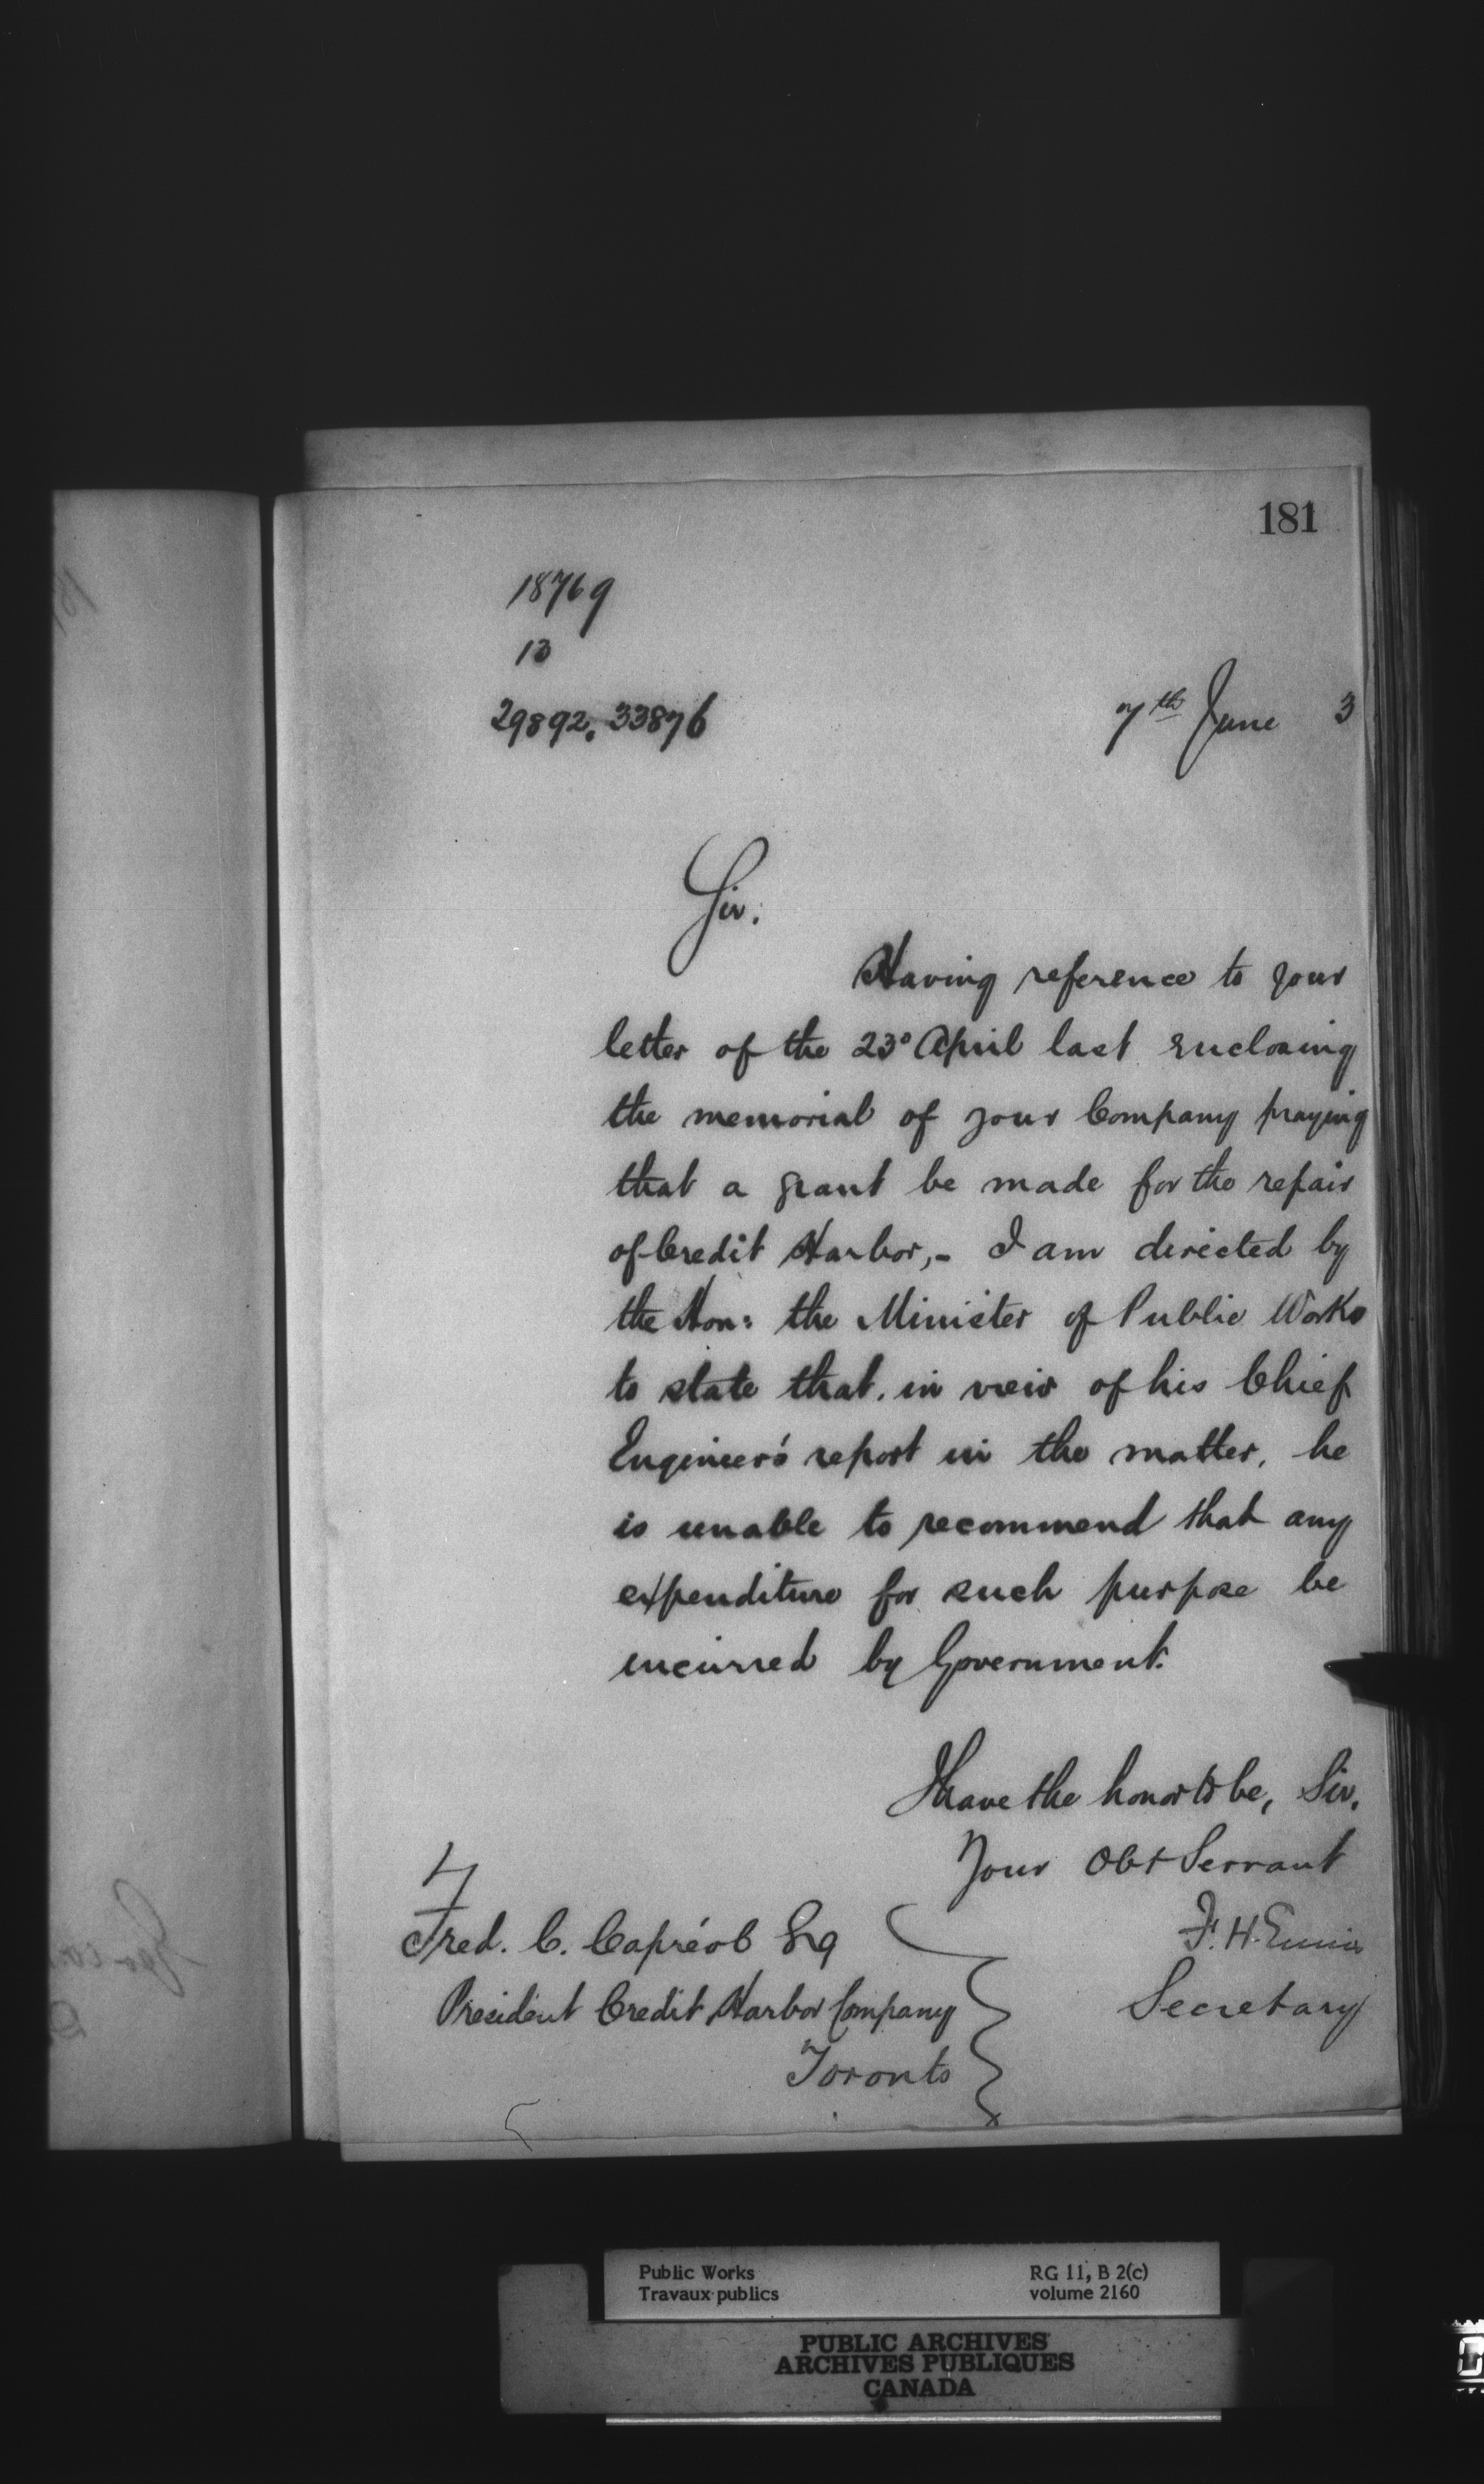 181
18769
13
29892. 33876
7th June 3
Sir.
Having reference to your
letter of the 23º April last enclosing
the memorial of your Company praying
that a grant be made for the repair
of Credit Harbor,- I am directed by
the Hon: the Minister of Public Works
to state that. in view of his Chief
Engineer's report in the matter, he
is unable to recommend that any
expenditure for such purpose be
incurred by Government.
I have the honor to be, Sir.
Your Obt Servant
F. H. Ennis
Secretary
Fred. C. Capréol Esq
President Credit Harbor Company
Toronto
Public Works
Travaux publics
RG 11, B 2(c)
volume 2160
PUBLIC ARCHIVES
ARCHIVES PUBLIQUES
CANADA